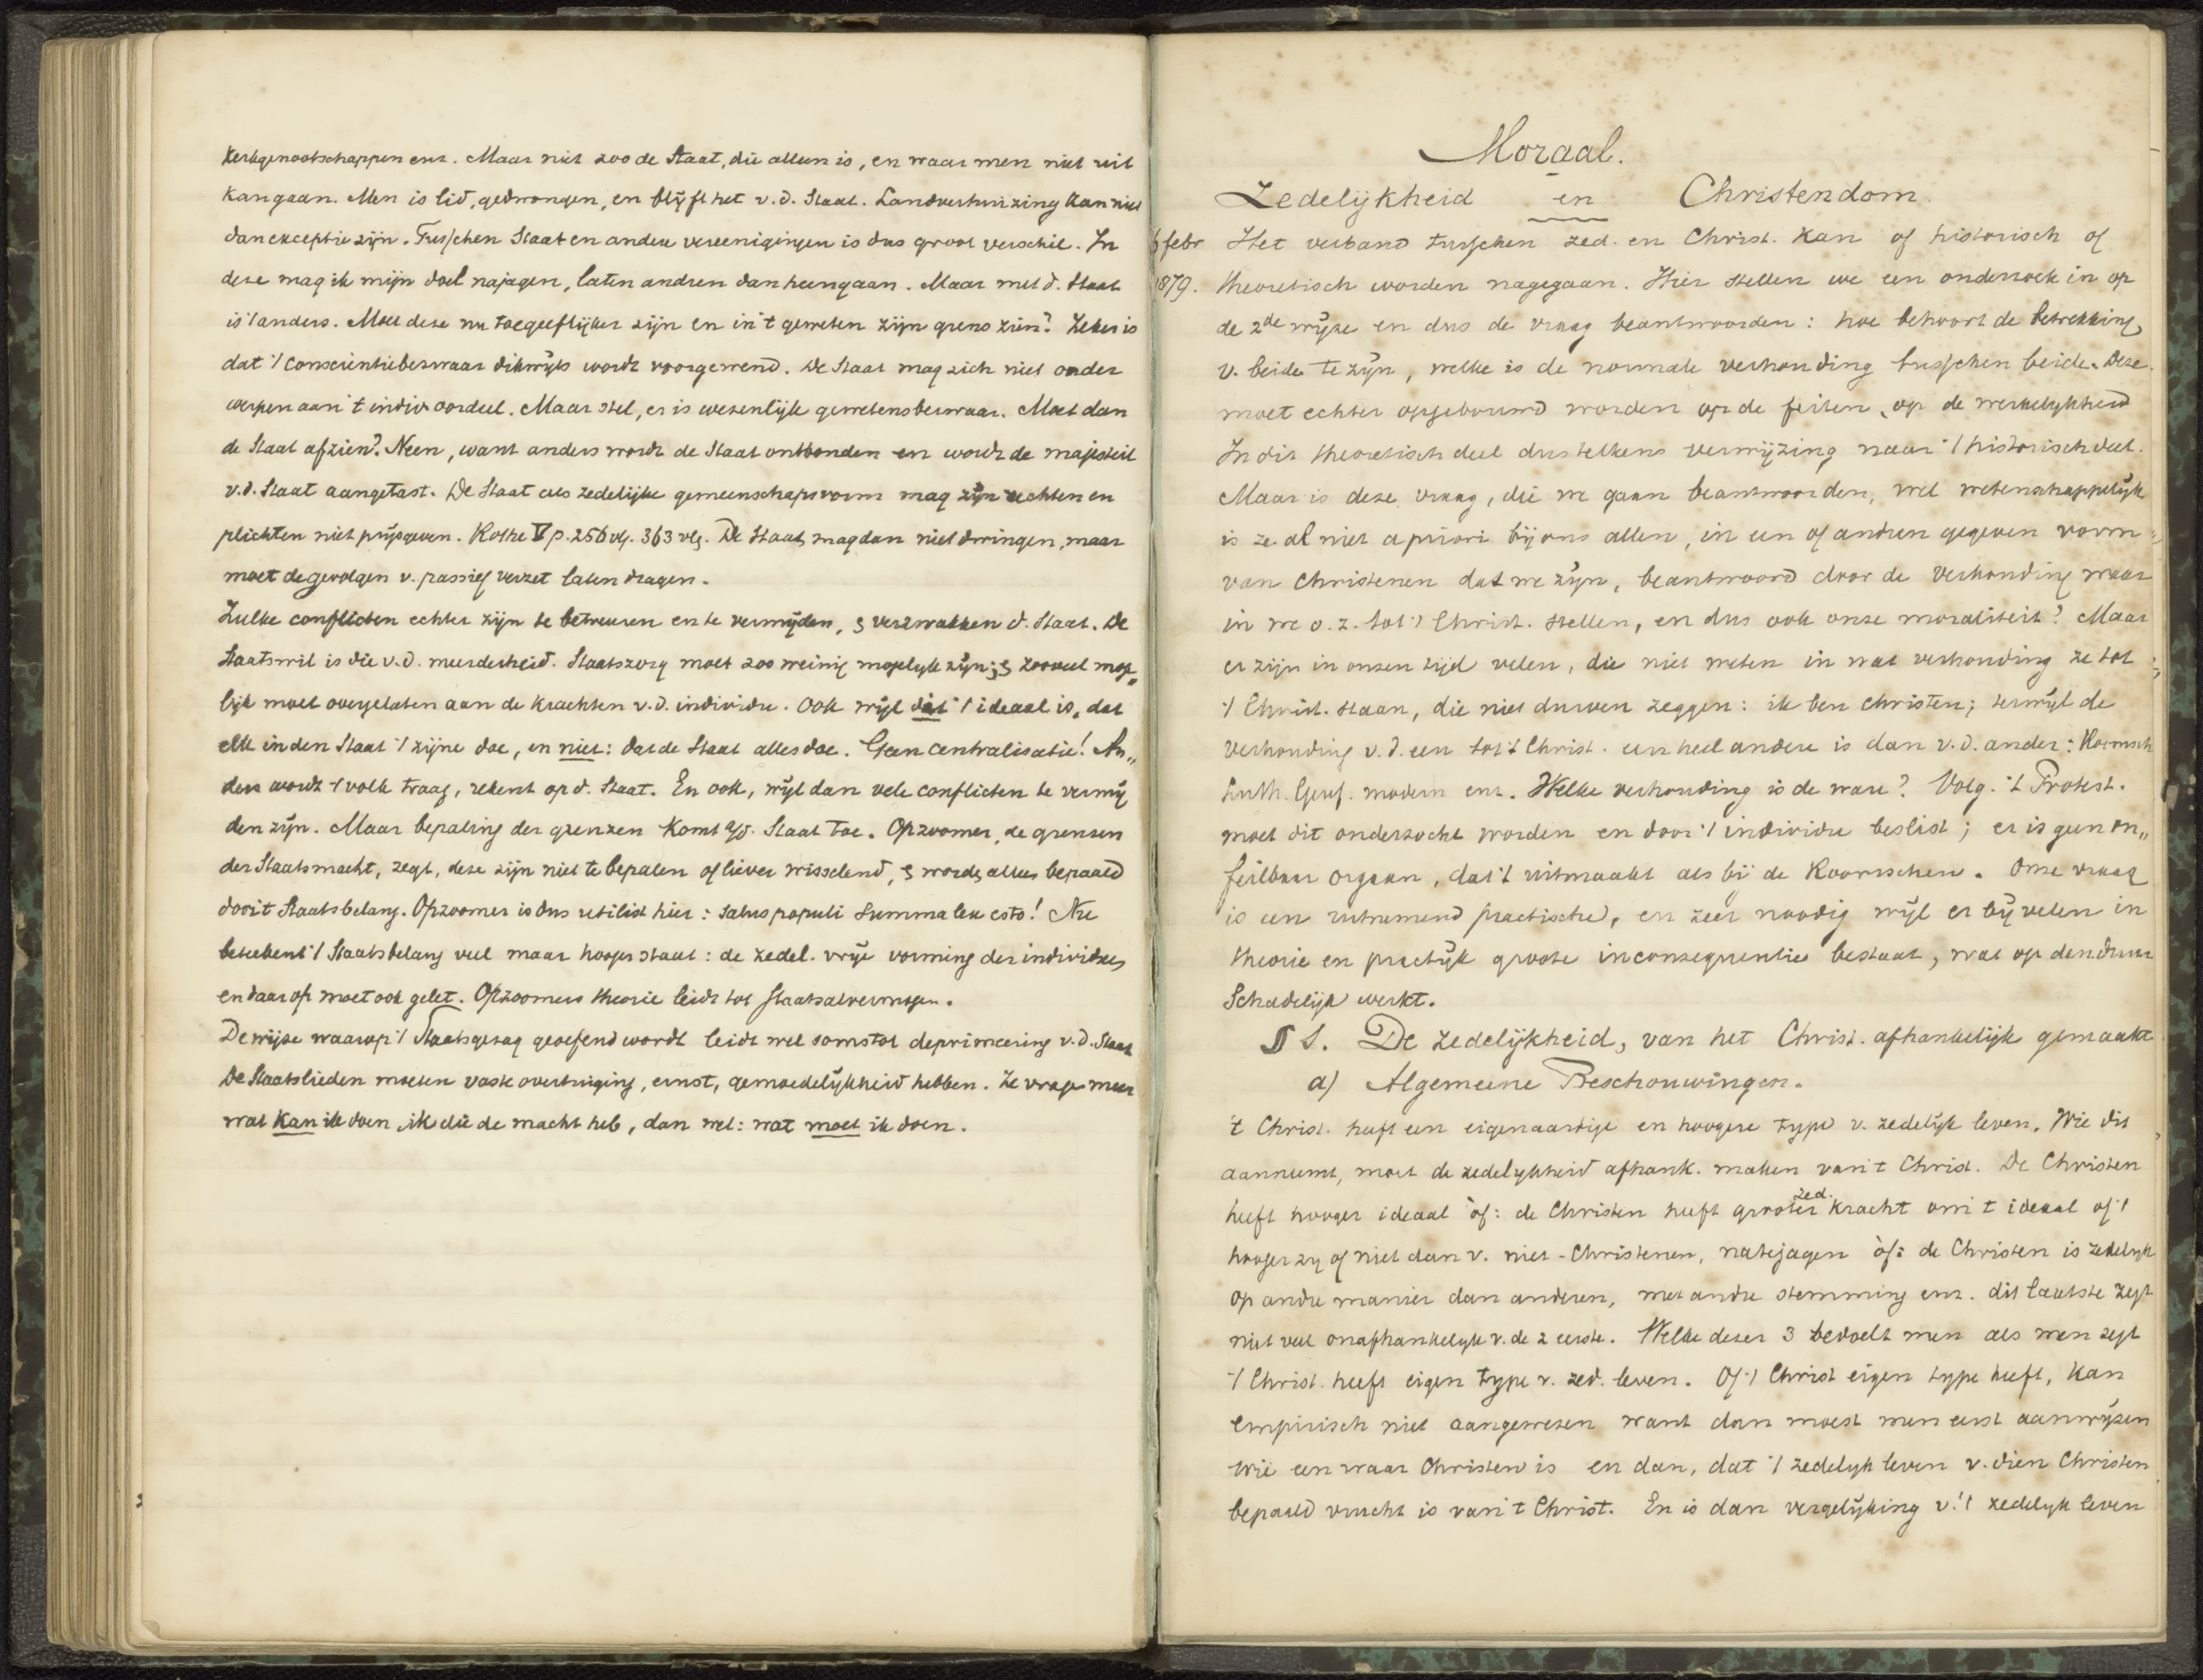 kerkgenootschappen enz. Maar niet zoo de Staat, die alleen is, en waar men niet uit
kan gaan. Men is lid, gedwongen, en blijft het v.d. Staat. Landverhuizing kan niet
dan exceptie zijn. Tusschen Staat en andere vereenigingen is dus groot verschil. In
deze mag ik mijn doel najagen, laten andren dan heengaan. Maar met d. Staat
is 't anders. Moet deze nu toegeeflijker zijn en in 't geweten zijn grens zien? Zeker is
dat 't conscientiebezwaar dikwijls wordt voorgewend. De Staat mag zich niet onder
werpen aan 't indiv. oordeel. Maar stel, er is wezenlijk gewetensbezwaar. Moet dan
de Staat afzien? Neen, want anders wordt de Staat ontbonden en wordt de majesteit
v.d. Staat aangetast. De Staat als zedelijke gemeenschapsvorm mag zijn rechten en
plichten niet prijsgeven. Rothe V p. 256 vlg. 363 vlg. De Staat mag dan niet dwingen, maar
moet de gevolgen v. passief verzet laten dragen.
Zulke conflicten echter zijn te betreuren en te vermijden, z verzwakken d. Staat. De
Staatswil is die v.d. meerderheid. Staatszorg moet zoo weinig mogelijk zijn; z zooveel moge„
lijk moet overgelaten aan de krachten v.d. individu. Ook wijl dat 't ideaal is, dat
elk in den Staat 't zijne doe, en niet: dat de Staat alles doe. Geen centralisatie! An„
ders wordt 't volk traag, rekent op d. Staat. En ook, wijl dan vele conflicten te vermij
den zijn. Maar bepaling der grenzen komt a/d. Staat toe. Opzoomer, de grenzen
der Staatsmacht, zegt, deze zijn niet te bepalen of liever wisselend, z worden alleen bepaald
door 't Staatsbelang. Opzoomer is dus utilist hier: salus populi summa lex esto! Nu
beteekent 't Staatsbelang veel maar hooger staat: de zedel. vrije vorming der individuen,
en daarop moet ook gelet. Opzoomers theorie leidt tot Staatsalvermogen.
De wijze waarop 't Staatsgezag geoefend wordt leidt wel soms tot depriméering v.d. Staat
De Staatslieden moeten vaste overtuiging, ernst, gemoedelijkheid hebben. Ze vragen meer
wat kan ik doen, ik die de macht heb, dan wel: wat moet ik doen.
Moraal.
Zedelijkheid en Christendom.
6 febr Het verband tusschen zed. en Christ. kan of historisch of
1879. theoretisch worden nagegaan. Hier stellen we een onderzoek in op
de 2de wijze en dus de vraag beantwoorden: hoe behoort de betrekking
v. beide te zijn, welke is de normale verhouding tusschen beide. Deze
moet echter opgebouwd worden op de feiten, op de werkelijkheid
In dit theoretisch deel dus telkens verwijzing naar 't historisch deel.
Maar is deze vraag, die we gaan beantwoorden, wel wetenschappelijk
is ze al niet a priori bij ons allen, in een of andren gegeven vorm
van Christenen dat we zijn, beantwoord door de verhouding waar
in we o.z. tot 't Christ. stellen, en dus ook onze moraliteit? Maar
er zijn in onzen tijd velen, die niet weten in wat verhouding ze tot
't Christ. staan, die niet durven zeggen: ik ben christen; terwijl de
verhouding v.d. een tot 't Christ. een heel andere is dan v.d. ander: Roomsch
Luth. Geref. modern enz. Welke verhouding is de ware? Volg. 't Protest.
moet dit onderzocht worden en door 't individu beslist; er is geen on„
feilbaar orgaan, dat 't uitmaakt als bij de Roomschen. Onze vraag
is een uitnemend practische, en zeer noodig wijl er bij velen in
theorie en practijk groote inconsequenties bestaat, wat op den duur
schadelijk werkt.
§ 1. De zedelijkheid, van het Christ. afhankelijk gemaakt
a) Algemeene Beschouwingen.
't Christ. heeft een eigenaardige en hoogere type v. zedelijk leven. Wie dit
aanneemt, moet de zedelijkheid afhank. maken van 't Christ. De Christen
heeft hooger ideaal òf: de Christen heeft grooter zed. kracht om 't ideaal of 't
hooger zij of niet dan v. niet-Christenen, na te jagen òf: de Christen is zedelijk
op andre manier dan anderen, met andre stemming enz. dit laatste zegt
niet veel onafhankelijk v. de 2 eerste. Welke dezer 3 bedoelt men als men zegt
't Christ. heeft eigen type v. zed. leven. Of 't Christ eigen type heeft, kan
empirisch niet aangewezen want dan moest men eerst aanwijzen
wie een waar Christen is en dan, dat 't zedelijk leven v. dien Christen
bepaald vrucht is van 't Christ. En is dan vergelijking v. 't zedelijk leven